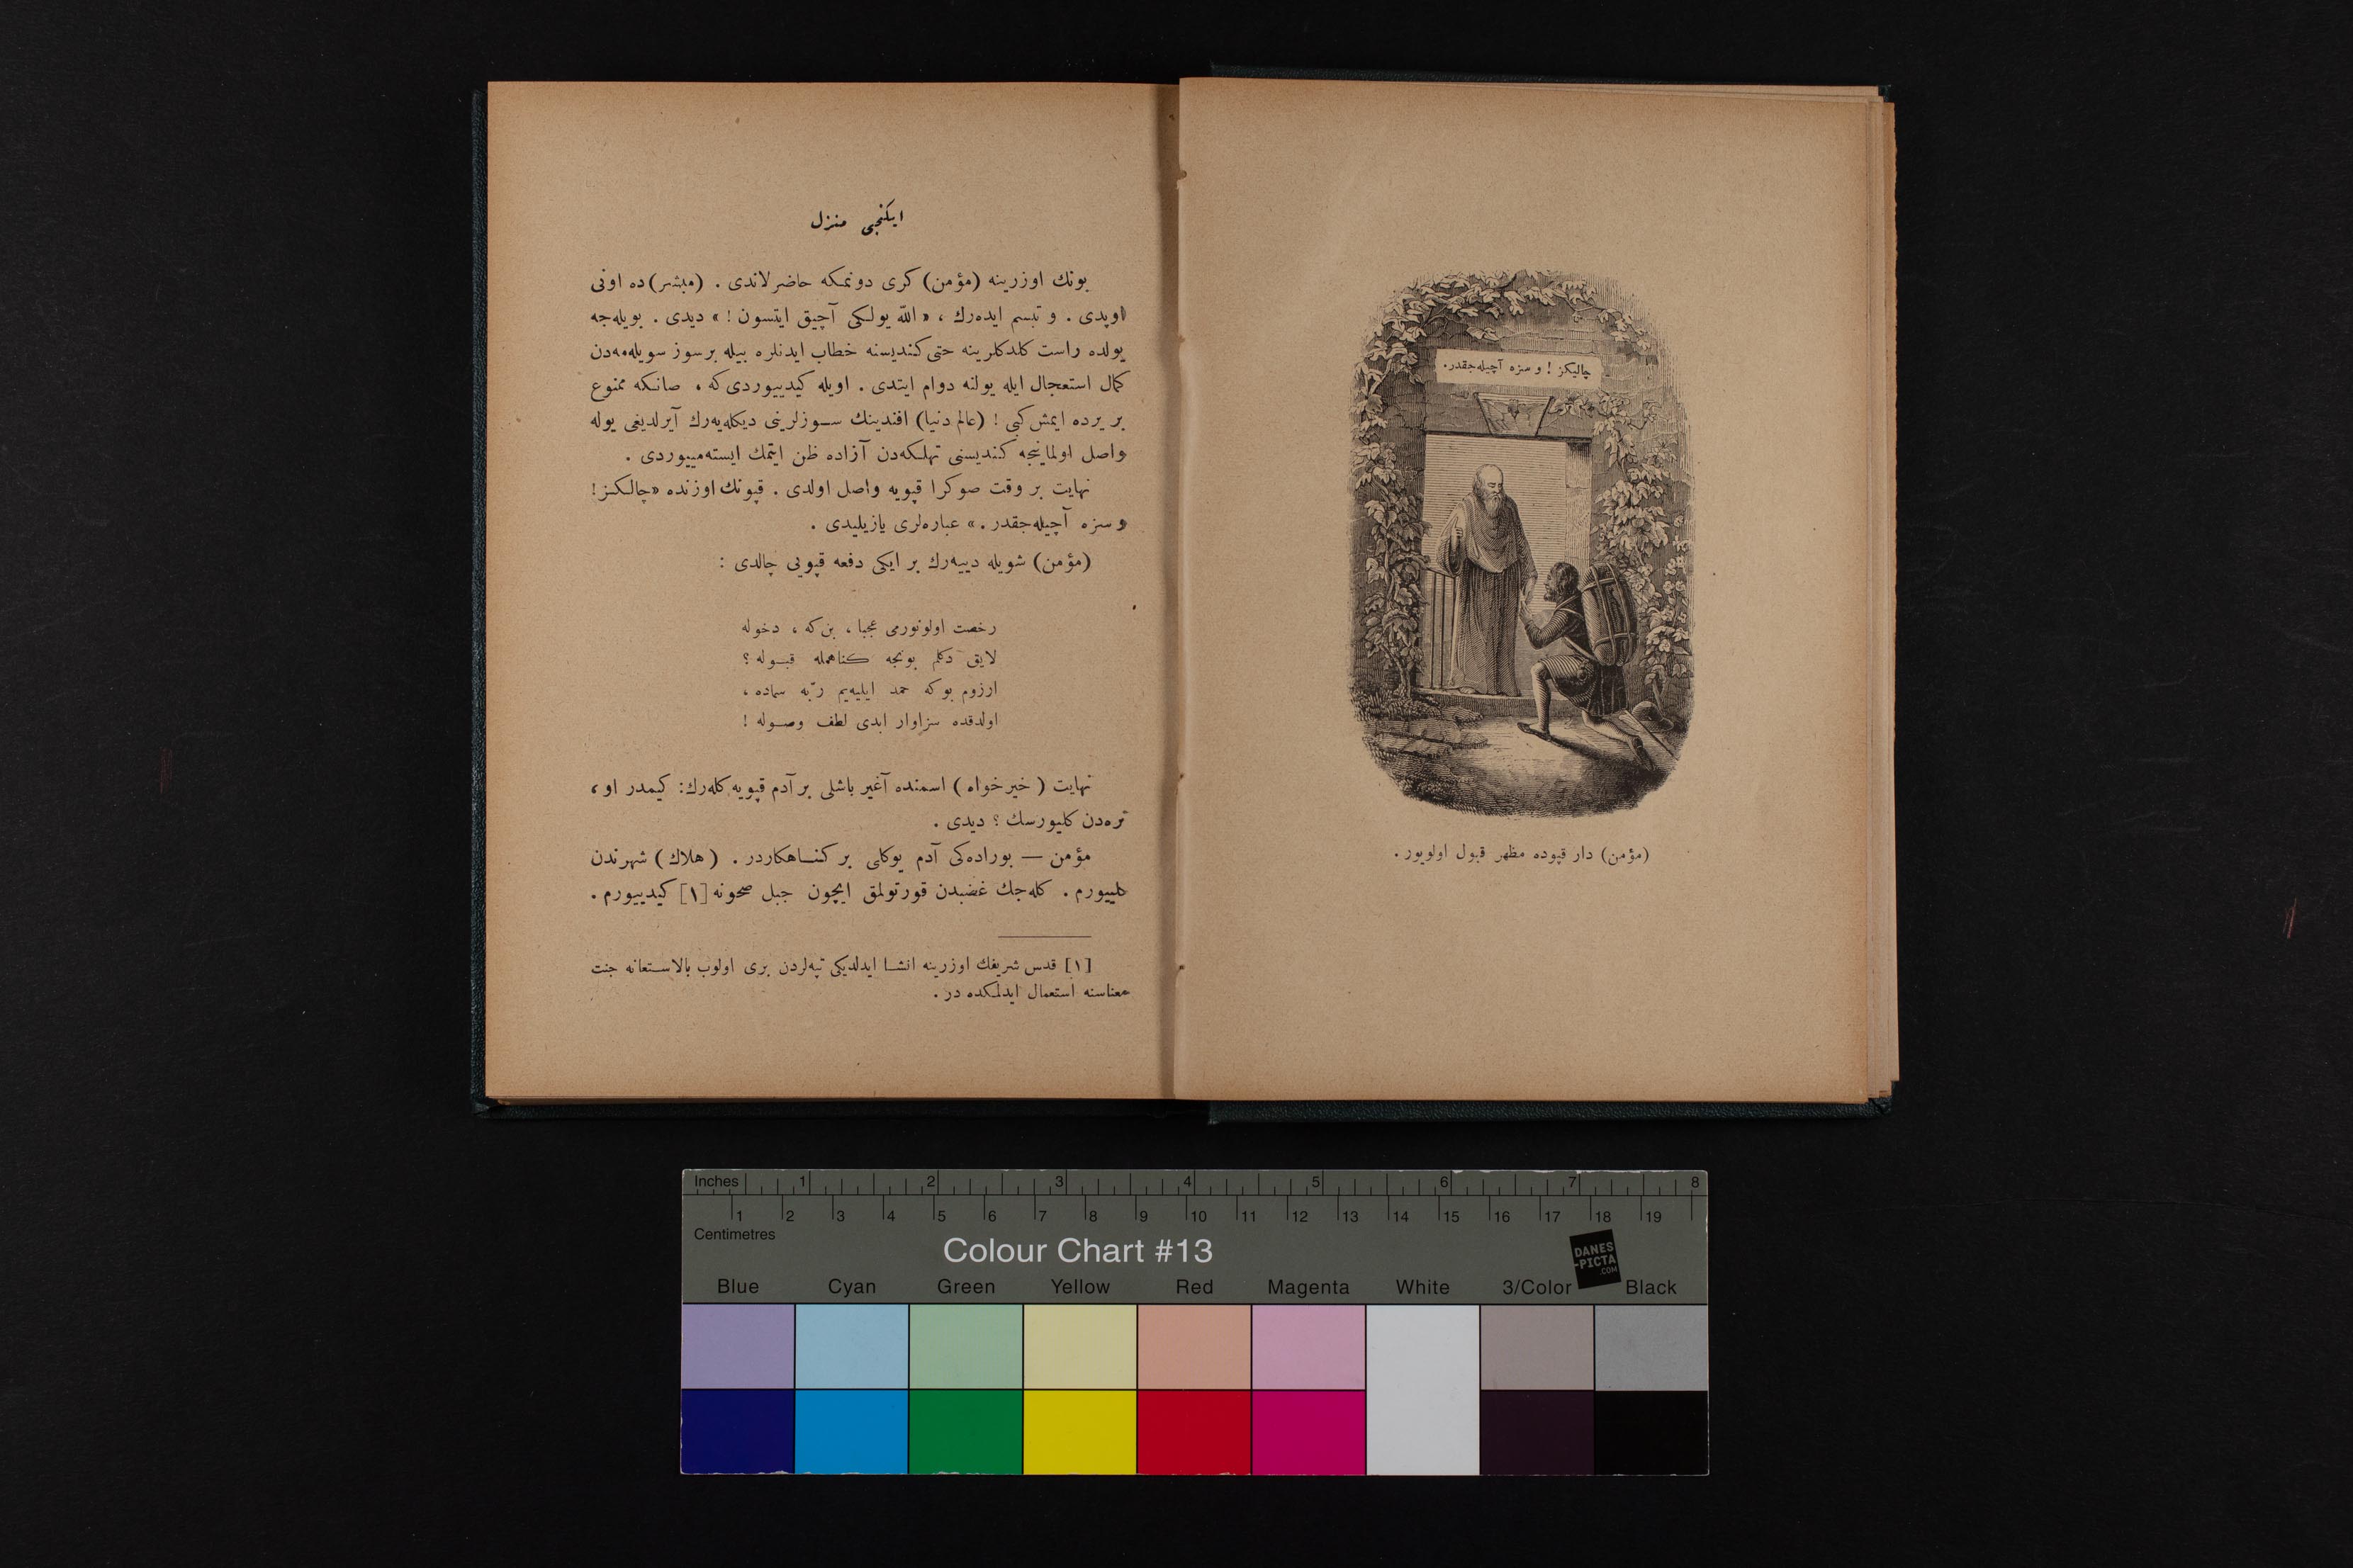 ایكنجی منزل
بونك اوزرینه (مؤمن) كری دونمكه حاضرلاندی . (مبشر) ده اونی
اوپدی . و تبسم ایده‌رك ، « اللّه یولكی آچیق ایتسون ! » دیدی . بویله‌جه
یولده راست كلدكلرینه حتی كندیسنه خطاب ایدنلره بیله بر سوز سویله‌مه‌دن
كمال استعجال ایله یولنه دوام ایتدی . اویله كیدییوردی كه ، صانكه ممنوع
بر یرده ایمش كبی ! (عالم دنیا) افندینك سوزلرینی دیكله‌یه‌رك آیرلدیغی یوله
واصل اولماینجه كندیسنی تهلكه‌دن آزاده ظن ایتمك ایسته‌مییوردی .
نهایت بر وقت صوكرا قپویه واصل اولدی . قپونك اوزنده « چالكز !
و سزه آچیله‌جقدر . » عباره‌لری یازیلیدی .
(مؤمن) شویله دییه‌رك بر ایكی دفعه قپویی چالدی :
رخصت اولونورمی عجبا ، بن كه ، دخوله
لایق دكلم بونجه كناهمله قبوله ؟
ارزوم بوكه حمد ایلیه‌یم ربّه سماده ،
اولدقده سزاوار ابدی لطف وصوله !
نهایت ( خیرخواه ) اسمنده آغیر باشلی بر آدم قپویه كله‌رك : كیمدر او ،
نره‌دن كلیورسك ؟ دیدی .
مؤمن — بوراده‌كی آدم یوكلی بر كناهكاردر . ( هلاك ) شهرندن
كلییورم . كله‌جك غضبدن قورتولمق ایچون جبل صحونه [١] كیدییورم .
[١] قدس شریفك اوزرینه انشا ایدلدیكی تپه‌لردن بری اولوب بالاستعانه جنت
معناسنه استعمال ایدلمكده در .
چالیكز ! و سزه آچیله‌جقدر.
(مؤمن) دار قپوده مظهر قبول اولویور .
Inches 1 2 3 4 5 6 7 8
1 2 3 4 5 6 7 8 9 10 11 12 13 14 15 16 17 18 19
Centimetres
Colour Chart #13
DANES
-PICTA
.COM
Blue Cyan Green Yellow Red Magenta White 3/Color Black